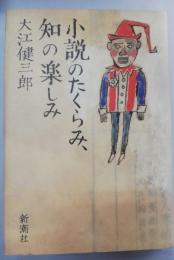 小説のたくらみ、
知の楽しみ
大江健三郎
新潮社